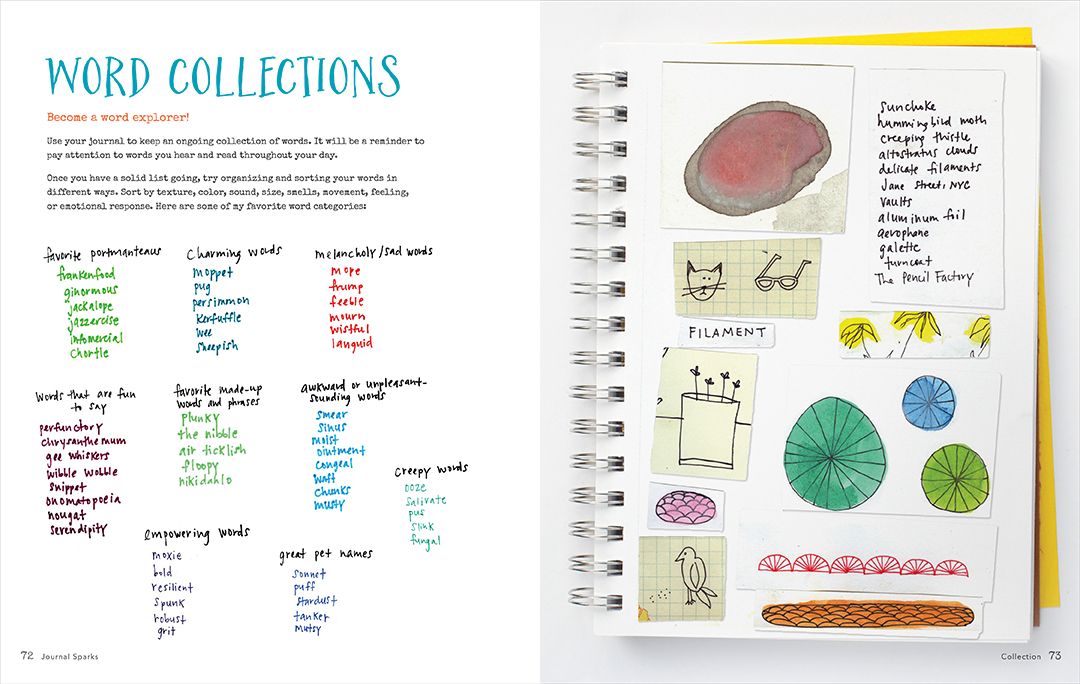 WORD COLLECTIONS
Become a word explorer!
Use your journal to keep an ongoing collection of words. It will be a reminder to
pay attention to words you hear and read throughout your day.
Once you have a solid list going, try organizing and sorting your words in
different ways. Sort by texture, color, sound, size, smells, movement, feeling,
or emotional response. Here are some of my favorite word categories:
favorite portmanteaus
frankenfood
ginormous
jackalope
jazzercise
infomercial
chortle
Charming words
moppet
pug
persimmon
kerfuffle
wee
sheepish
melancholy/sad words
mope
frump
feeble
mourn
wistful
languid
words that are fun
to say
perfunctory
chrysanthemum
gee whiskers
wibble wobble
snippet
onomatopoeia
nougat
serendipity
favorite made-up
words and phrases
plunky
the nibble
air ticklish
floopy
nikidahlo
awkward or unpleasant-
sounding words
smear
sinus
moist
ointment
congeal
waft
chunks
musty
creepy words
ooze
salivate
pus
slink
fungal
empowering words
moxie
bold
resilient
spunk
robust
grit
great pet names
sonnet
puff
stardust
tanker
mutsy
72 Journal Sparks
sunchoke
hummingbird moth
creeping thistle
altostratus clouds
delicate filaments
Jane Street, NYC
vaults
aluminum foil
aerophane
galette
turncoat
The Pencil Factory
FILAMENT
Collection 73